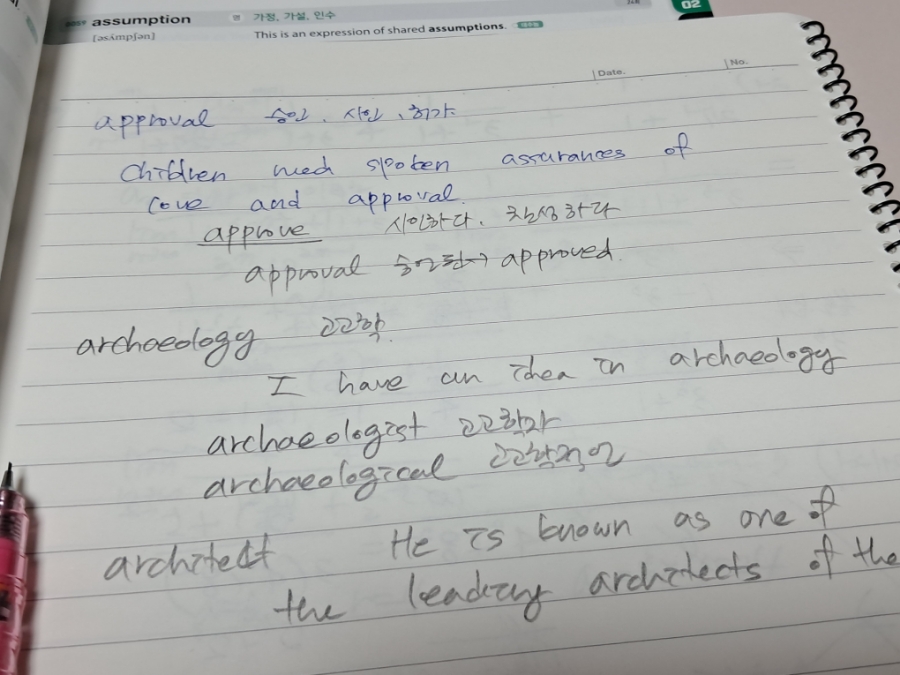 assumption 명 가정, 가설, 인수
[əsʌ́mpʃən] This is an expression of shared assumptions.
02
Date. No.
approval 승인, 시인, 허가.
Children need spoken assurances of
love and approval.
approve 시인하다. 찬성하다
approval 승인된 → approved.
archaeology 고고학.
I have an idea in archaeology
archaeologist 고고학자
archaeological 고고학적인
architect He is known as one of
the leading architects of the